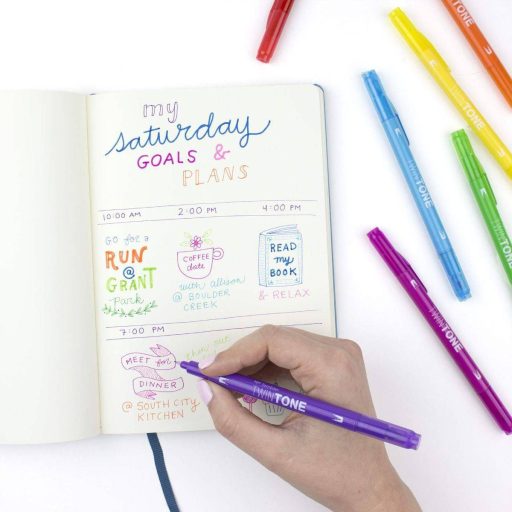 my
saturday
GOALS &
PLANS
10:00 AM 2:00 PM 4:00 PM
GO for a
RUN
@
GRANT
Park
COFFEE
date
with allison
@ BOULDER
CREEK
READ
my
BOOK
& RELAX
7:00 PM
MEET for
DINNER
@ SOUTH CITY
KITCHEN
then out
TWINTONE
TWINTONE
TWINTONE
TWINTONE
TWINTONE